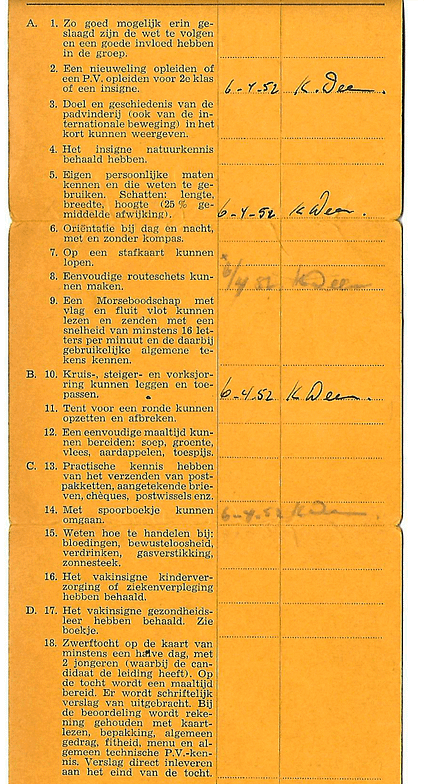 A. 1. Zo goed mogelijk erin ge-
slaagd zijn de wet te volgen
en een goede invloed hebben
in de groep.
2. Een nieuweling opleiden of
een P.V. opleiden voor 2e klas
of een insigne. 6-4-52 K. Dee
3. Doel en geschiedenis van de
padvinderij (ook van de in-
ternationale beweging) in het
kort kunnen weergeven.
4. Het insigne natuurkennis
behaald hebben.
5. Eigen persoonlijke maten
kennen en die weten te ge-
bruiken. Schatten: lengte,
breedte, hoogte (25 % ge-
middelde afwijking). 6-4-52 K
6. Oriëntatie bij dag en nacht,
met en zonder kompas.
7. Op een stafkaart kunnen
lopen.
8. Eenvoudige routeschets kun-
nen maken. 6/4 52 K
9. Een Morseboodschap met
vlag en fluit vlot kunnen
lezen en zenden met een
snelheid van minstens 16 let-
ters per minuut en de daarbij
gebruikelijke algemene te-
kens kennen.
B. 10. Kruis-, steiger- en vorksjor-
ring kunnen leggen en toe-
passen. 6-4-52 K
11. Tent voor een ronde kunnen
opzetten en afbreken.
12. Een eenvoudige maaltijd kun-
nen bereiden: soep, groente,
vlees, aardappelen, toespijs.
C. 13. Practische kennis hebben
van het verzenden van post-
pakketten, aangetekende brie-
ven, chèques, postwissels enz.
14. Met spoorboekje kunnen
omgaan. 6-4-52 K
15. Weten hoe te handelen bij:
bloedingen, bewusteloosheid,
verdrinken, gasverstikking,
zonnesteek.
16. Het vakinsigne kinderver-
zorging of ziekenverpleging
hebben behaald.
D. 17. Het vakinsigne gezondheids-
leer hebben behaald. Zie
boekje.
18. Zwerftocht op de kaart van
minstens een halve dag, met
2 jongeren (waarbij de can-
didaat de leiding heeft). Op
de tocht wordt een maaltijd
bereid. Er wordt schriftelijk
verslag van uitgebracht. Bij
de beoordeling wordt reke-
ning gehouden met kaart-
lezen, bepakking, algemeen
gedrag, fitheid, menu en al-
gemeen technische P.V.-ken-
nis. Verslag direct inleveren
aan het eind van de tocht.